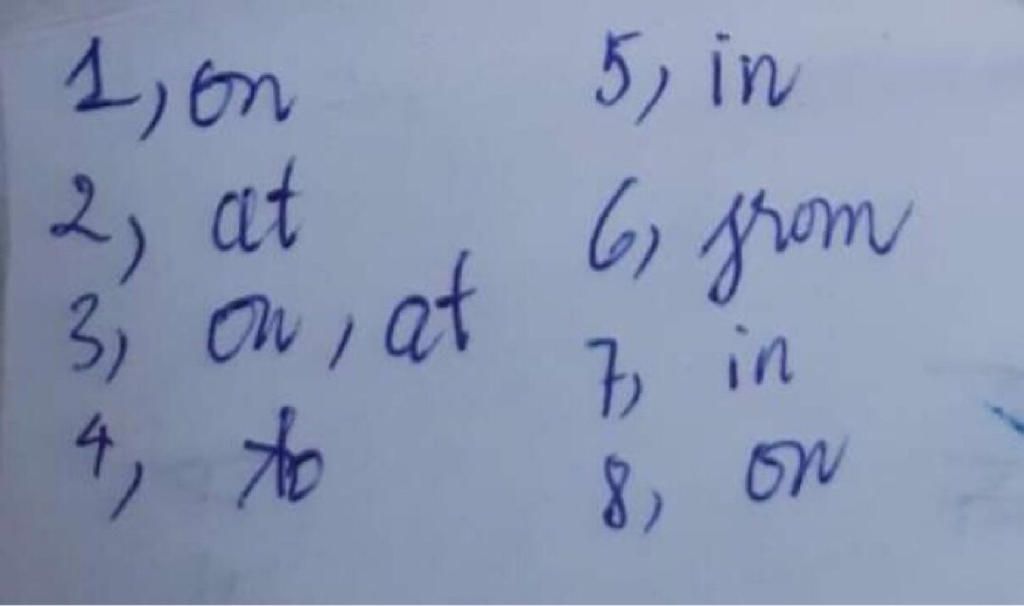 1, on
2, at
3, on, at
4, to
5, in
6, from
7, in
8, on